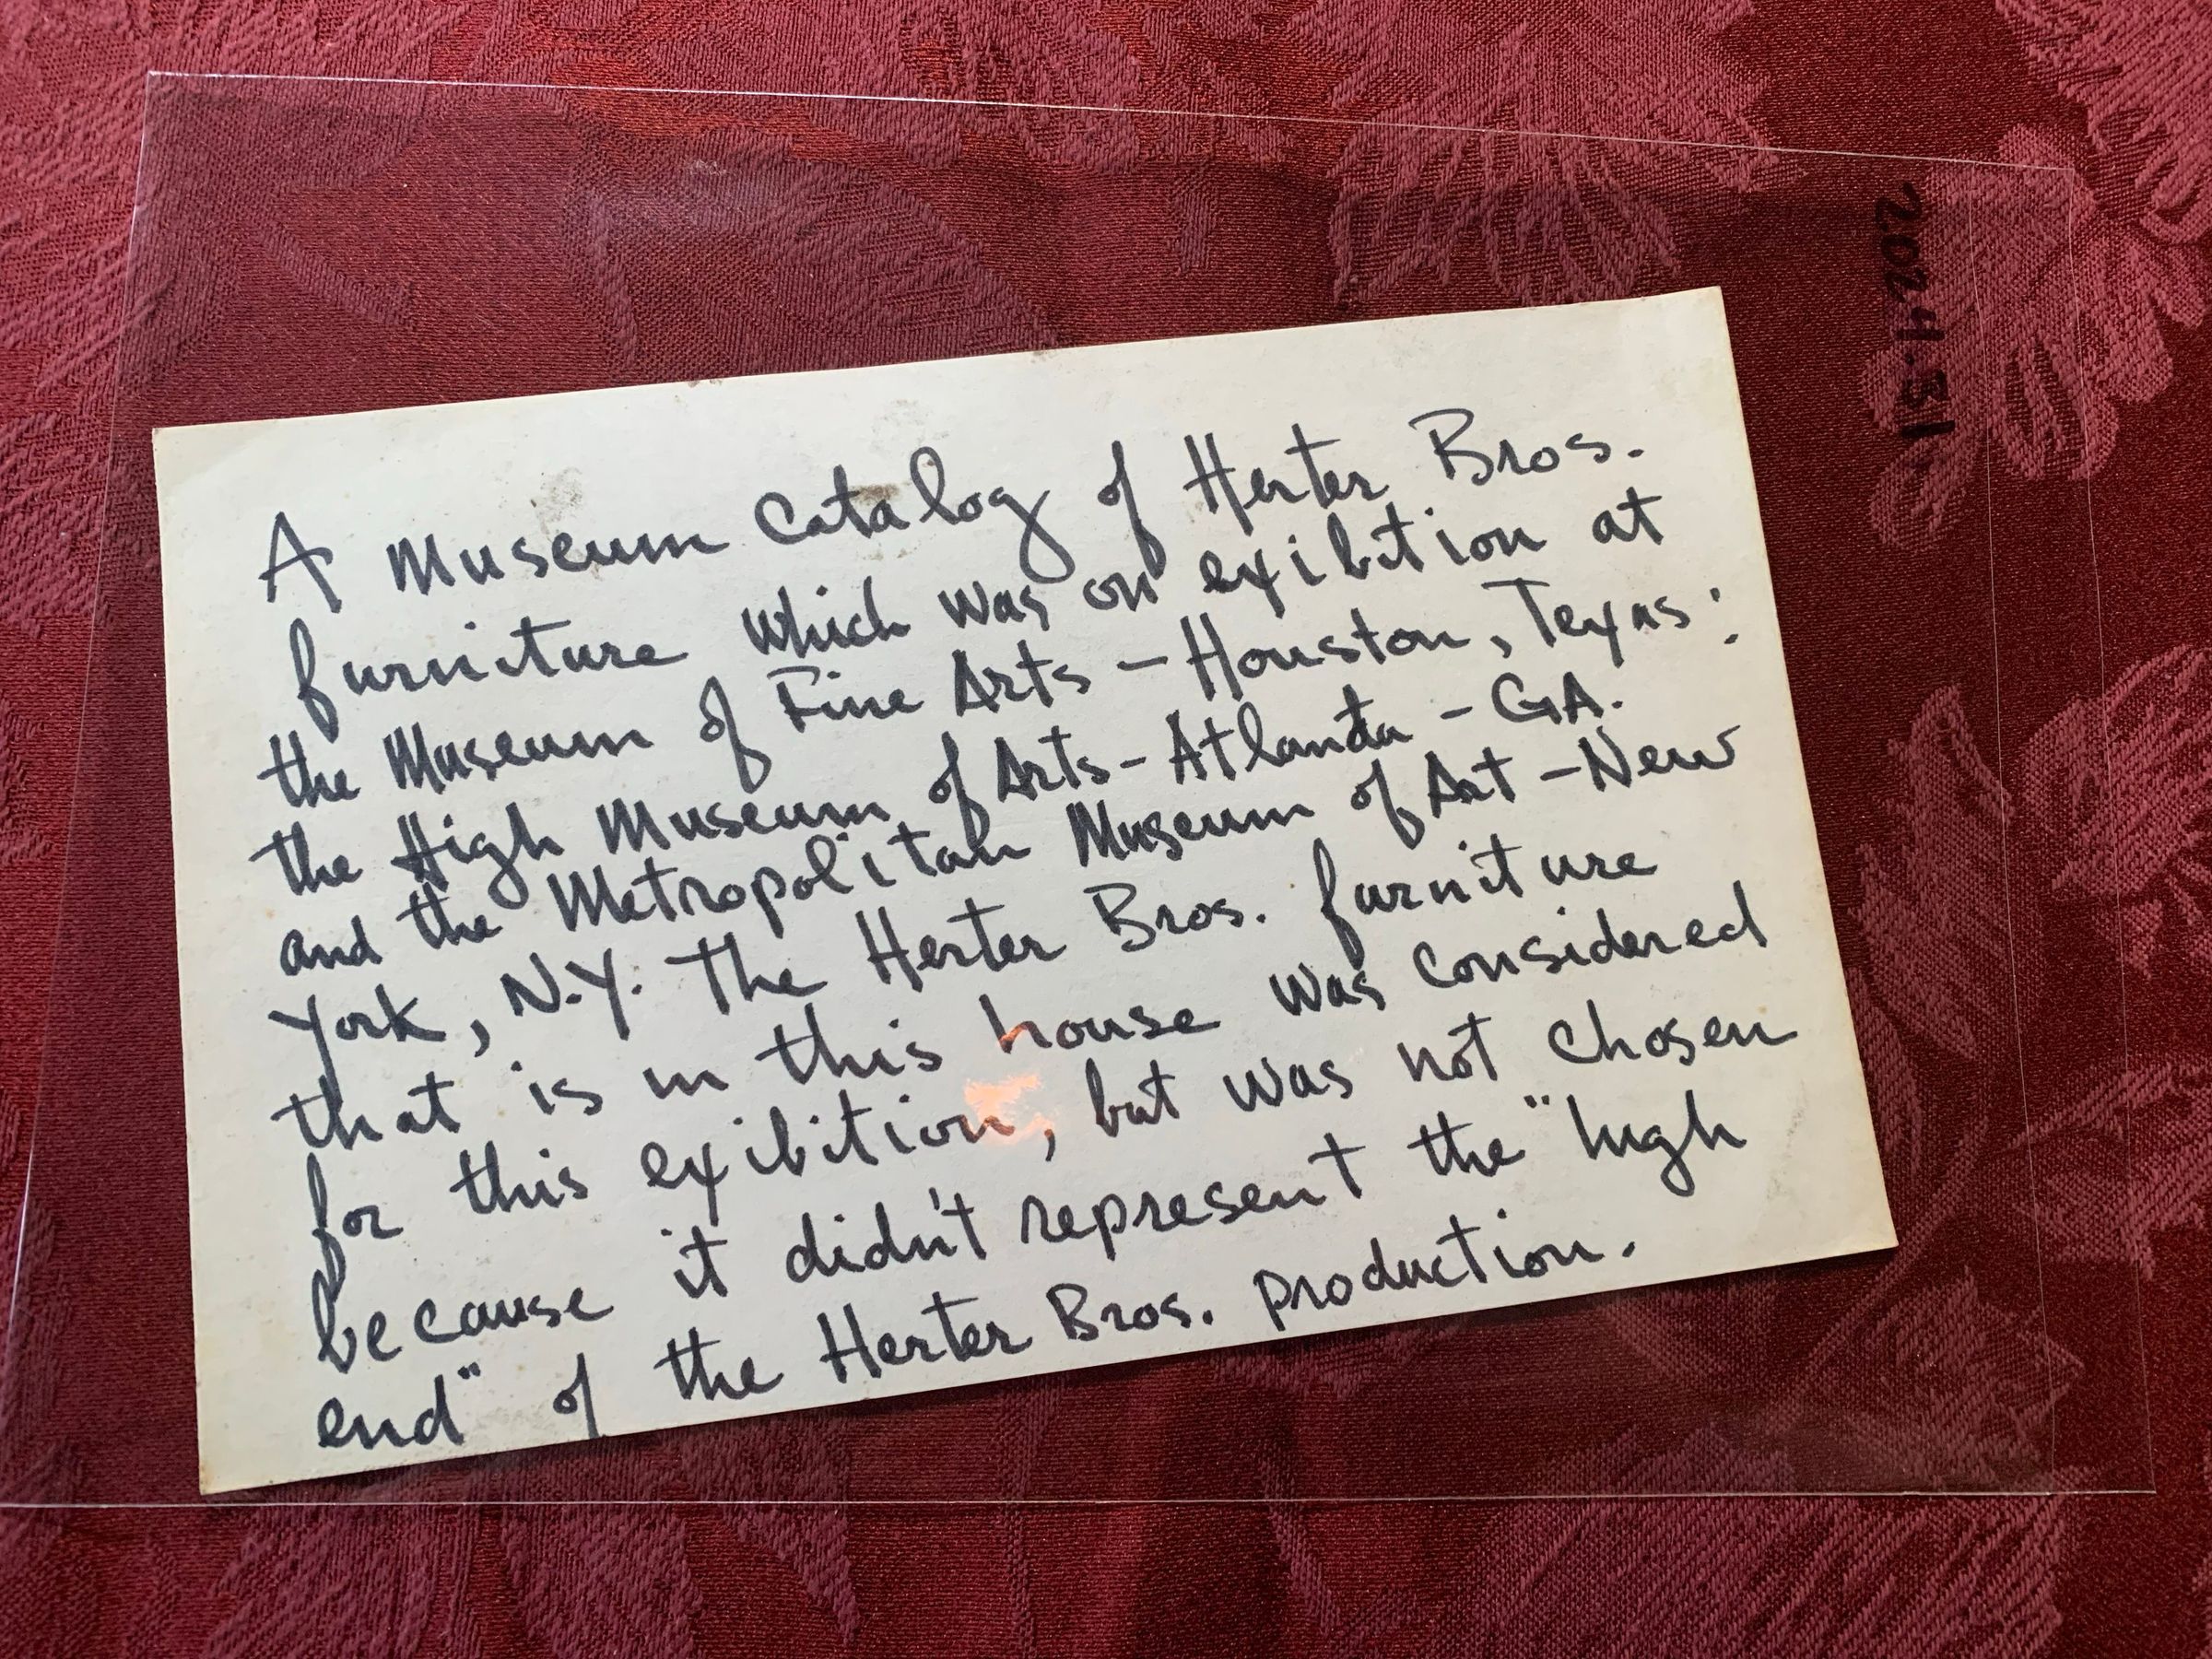 A Museum Catalog of Herter Bros.
furniture which was on exibition at
the Museum of Fine Arts - Houston, Texas:
the High Museum of Arts - Atlanta - GA.
and the Metropolitan Museum of Art - New
York, N.Y. The Herter Bros. furniture
that is in this house was considered
for this exibition, but was not chosen
because it didn't represent the "high
end" of the Herter Bros. production.
2024.31